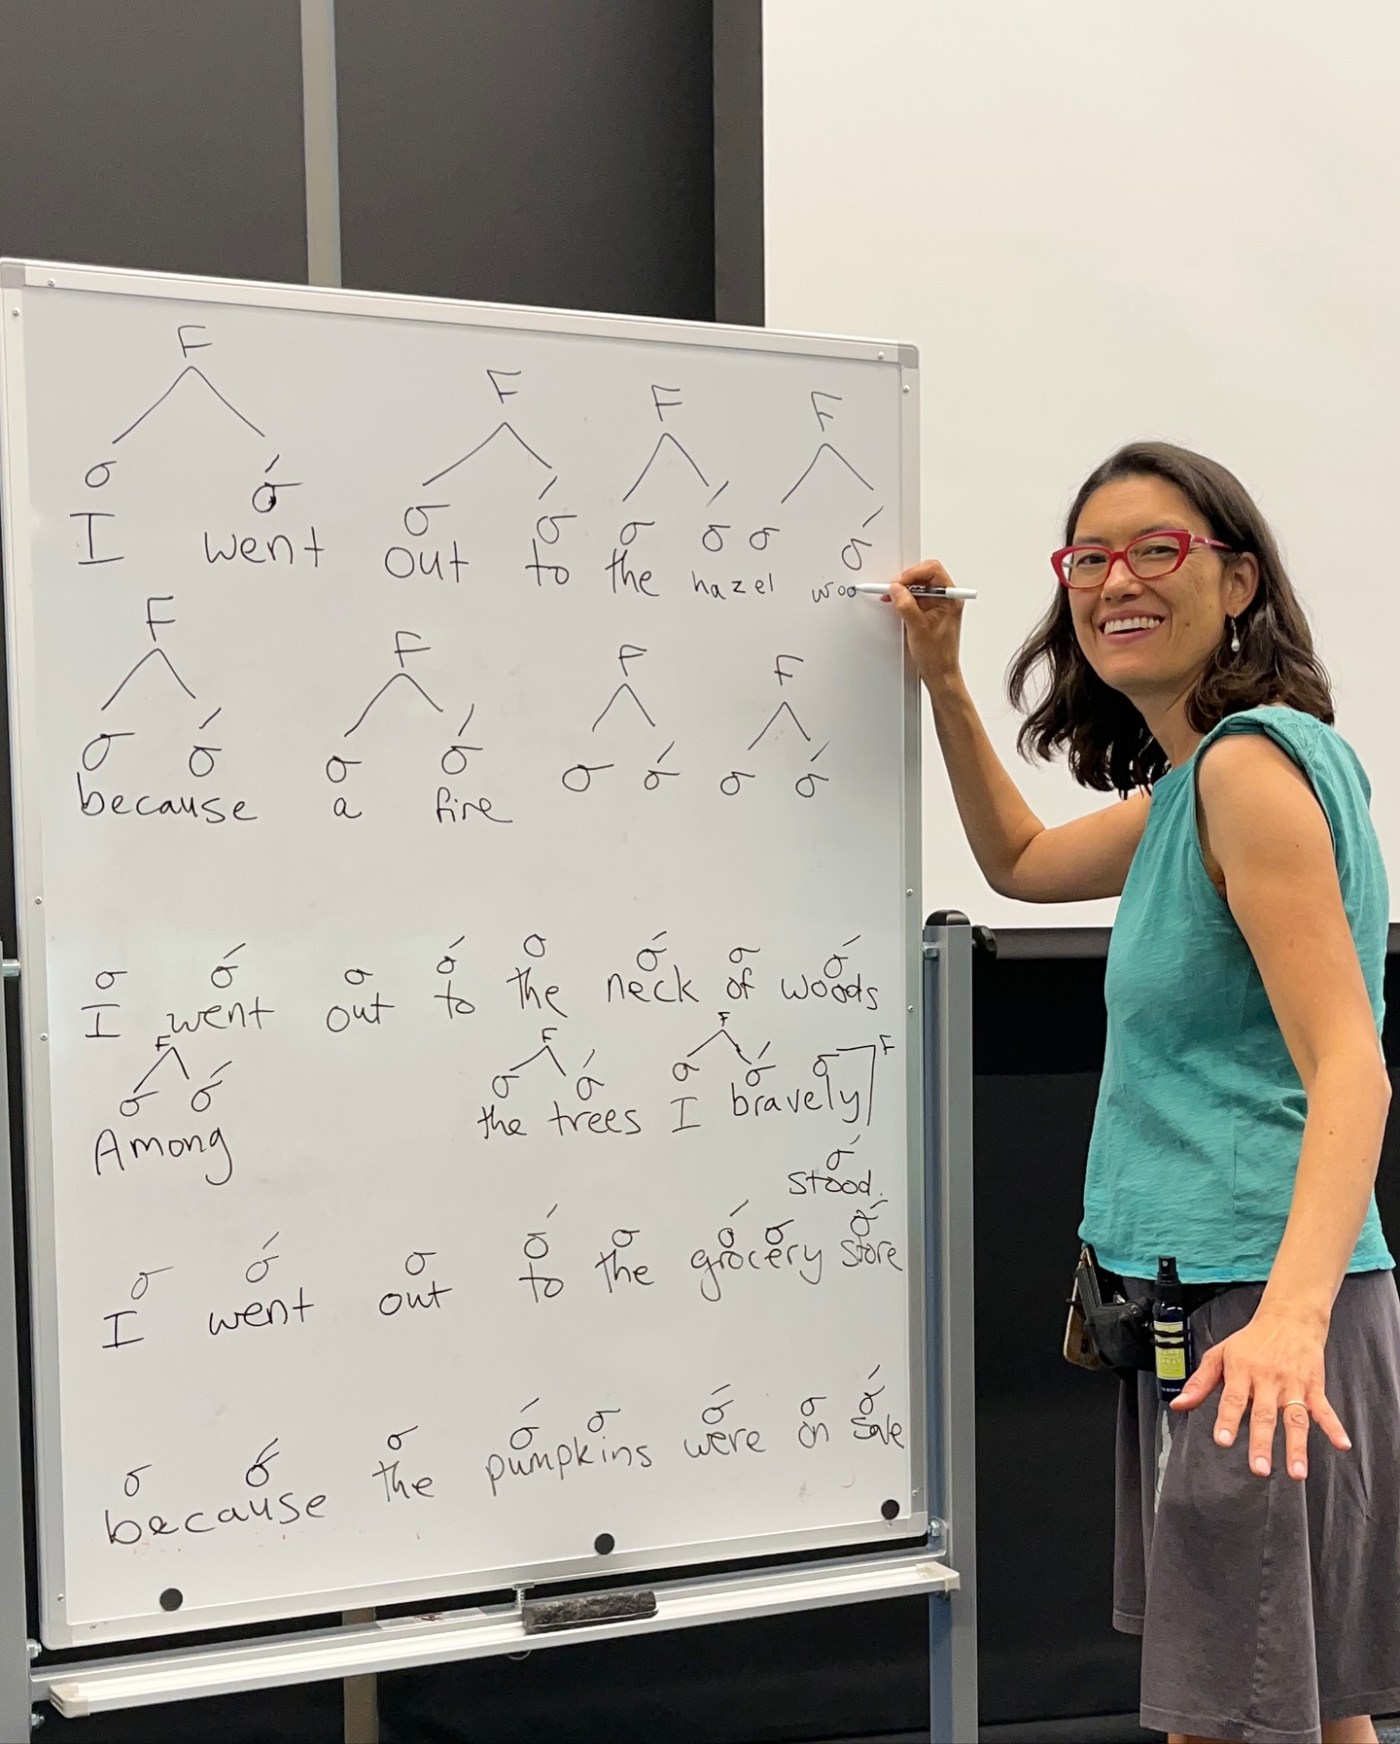 F F F F
σ σ́ σ σ́ σ σ́ σ σ́
I went out to the hazel woo
F F F F
σ σ́ σ σ́ σ σ́ σ σ́
because a fire
σ σ́ σ σ́ σ σ́ σ σ́
I went out to the neck of woods
F F F F
σ σ́ σ σ́ σ σ́ σ
Among the trees I bravely
σ́
stood.
σ σ́ σ σ́ σ σ́ σ σ́
I went out to the grocery store
σ σ́ σ σ́ σ σ́ σ σ́
because the pumpkins were on sale